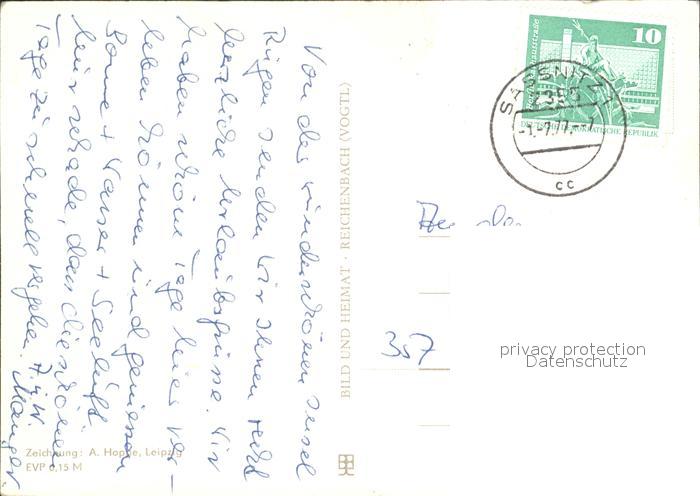 Von der wunderschönen Insel
Rügen senden wir Ihnen recht
herzliche Urlaubsgrüsse. Wir
haben schöne Tage hier ver-
leben können und geniessen
Sonne + Wasser + Seeluft.
Nur schade, dass die schönen
Tage zu schnell vergehen.
Zeichnung: A. Hoppe, Leipzig
EVP 0,15 M
BILD UND HEIMAT · REICHENBACH (VOGTL)
10
SASSNITZ 1
2355
DEUTSCHE DEMOKRATISCHE REPUBLIK
cc
357
privacy protection
Datenschutz